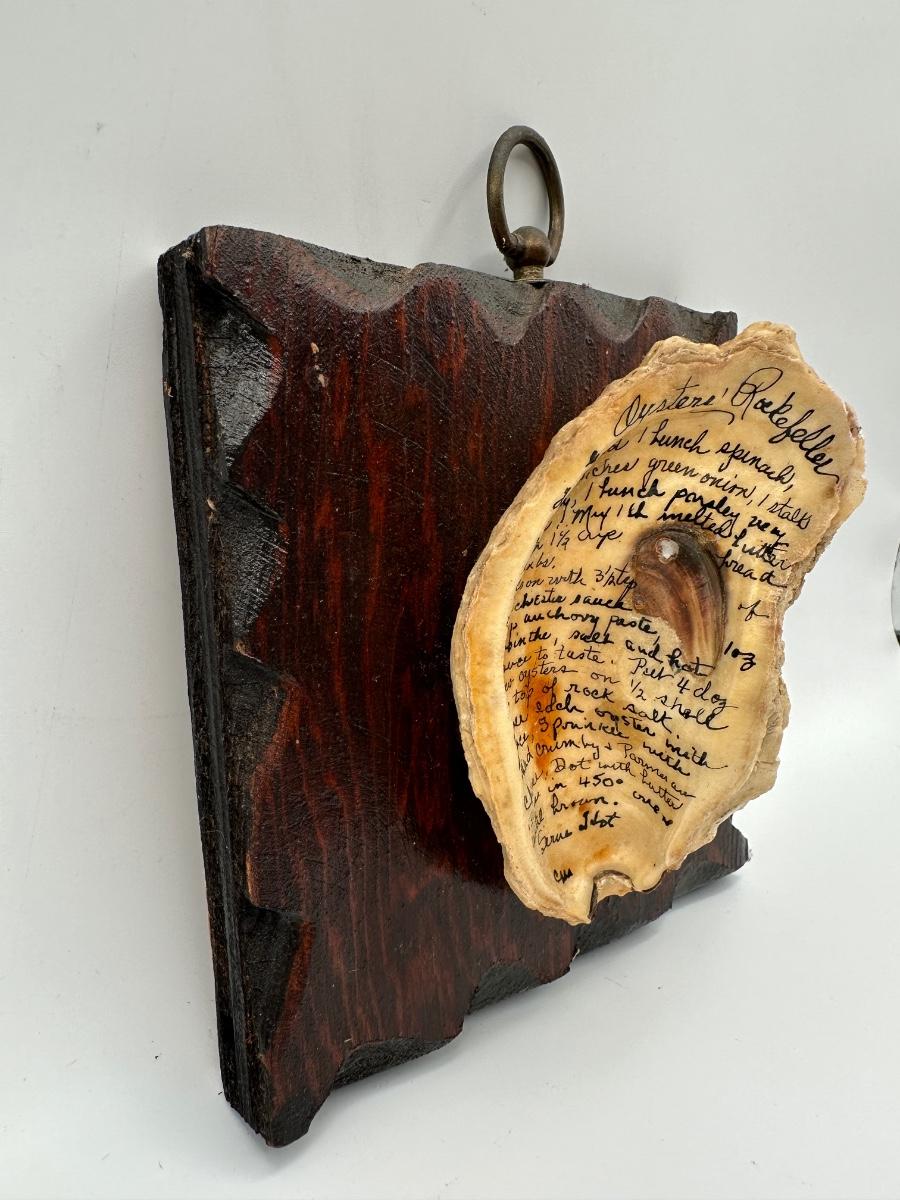 Oysters' Rockefeller
1 bunch spinach,
ches green onion, 1 stalk
1 bunch parsley very
! Mix 1 lb melted butter
1 1/2 cup bread
bs.
son with 3/4 tsp of
chestie sauce
anchovy paste, 1 oz
binthe, salt and hot
to taste. Put 4 doz
oysters on 1/2 shell
top of rock salt
each oyster with
Sprinkle with
crumbs + Parmesan
Dot with butter
in 450° oven
brown.
Serve Hot